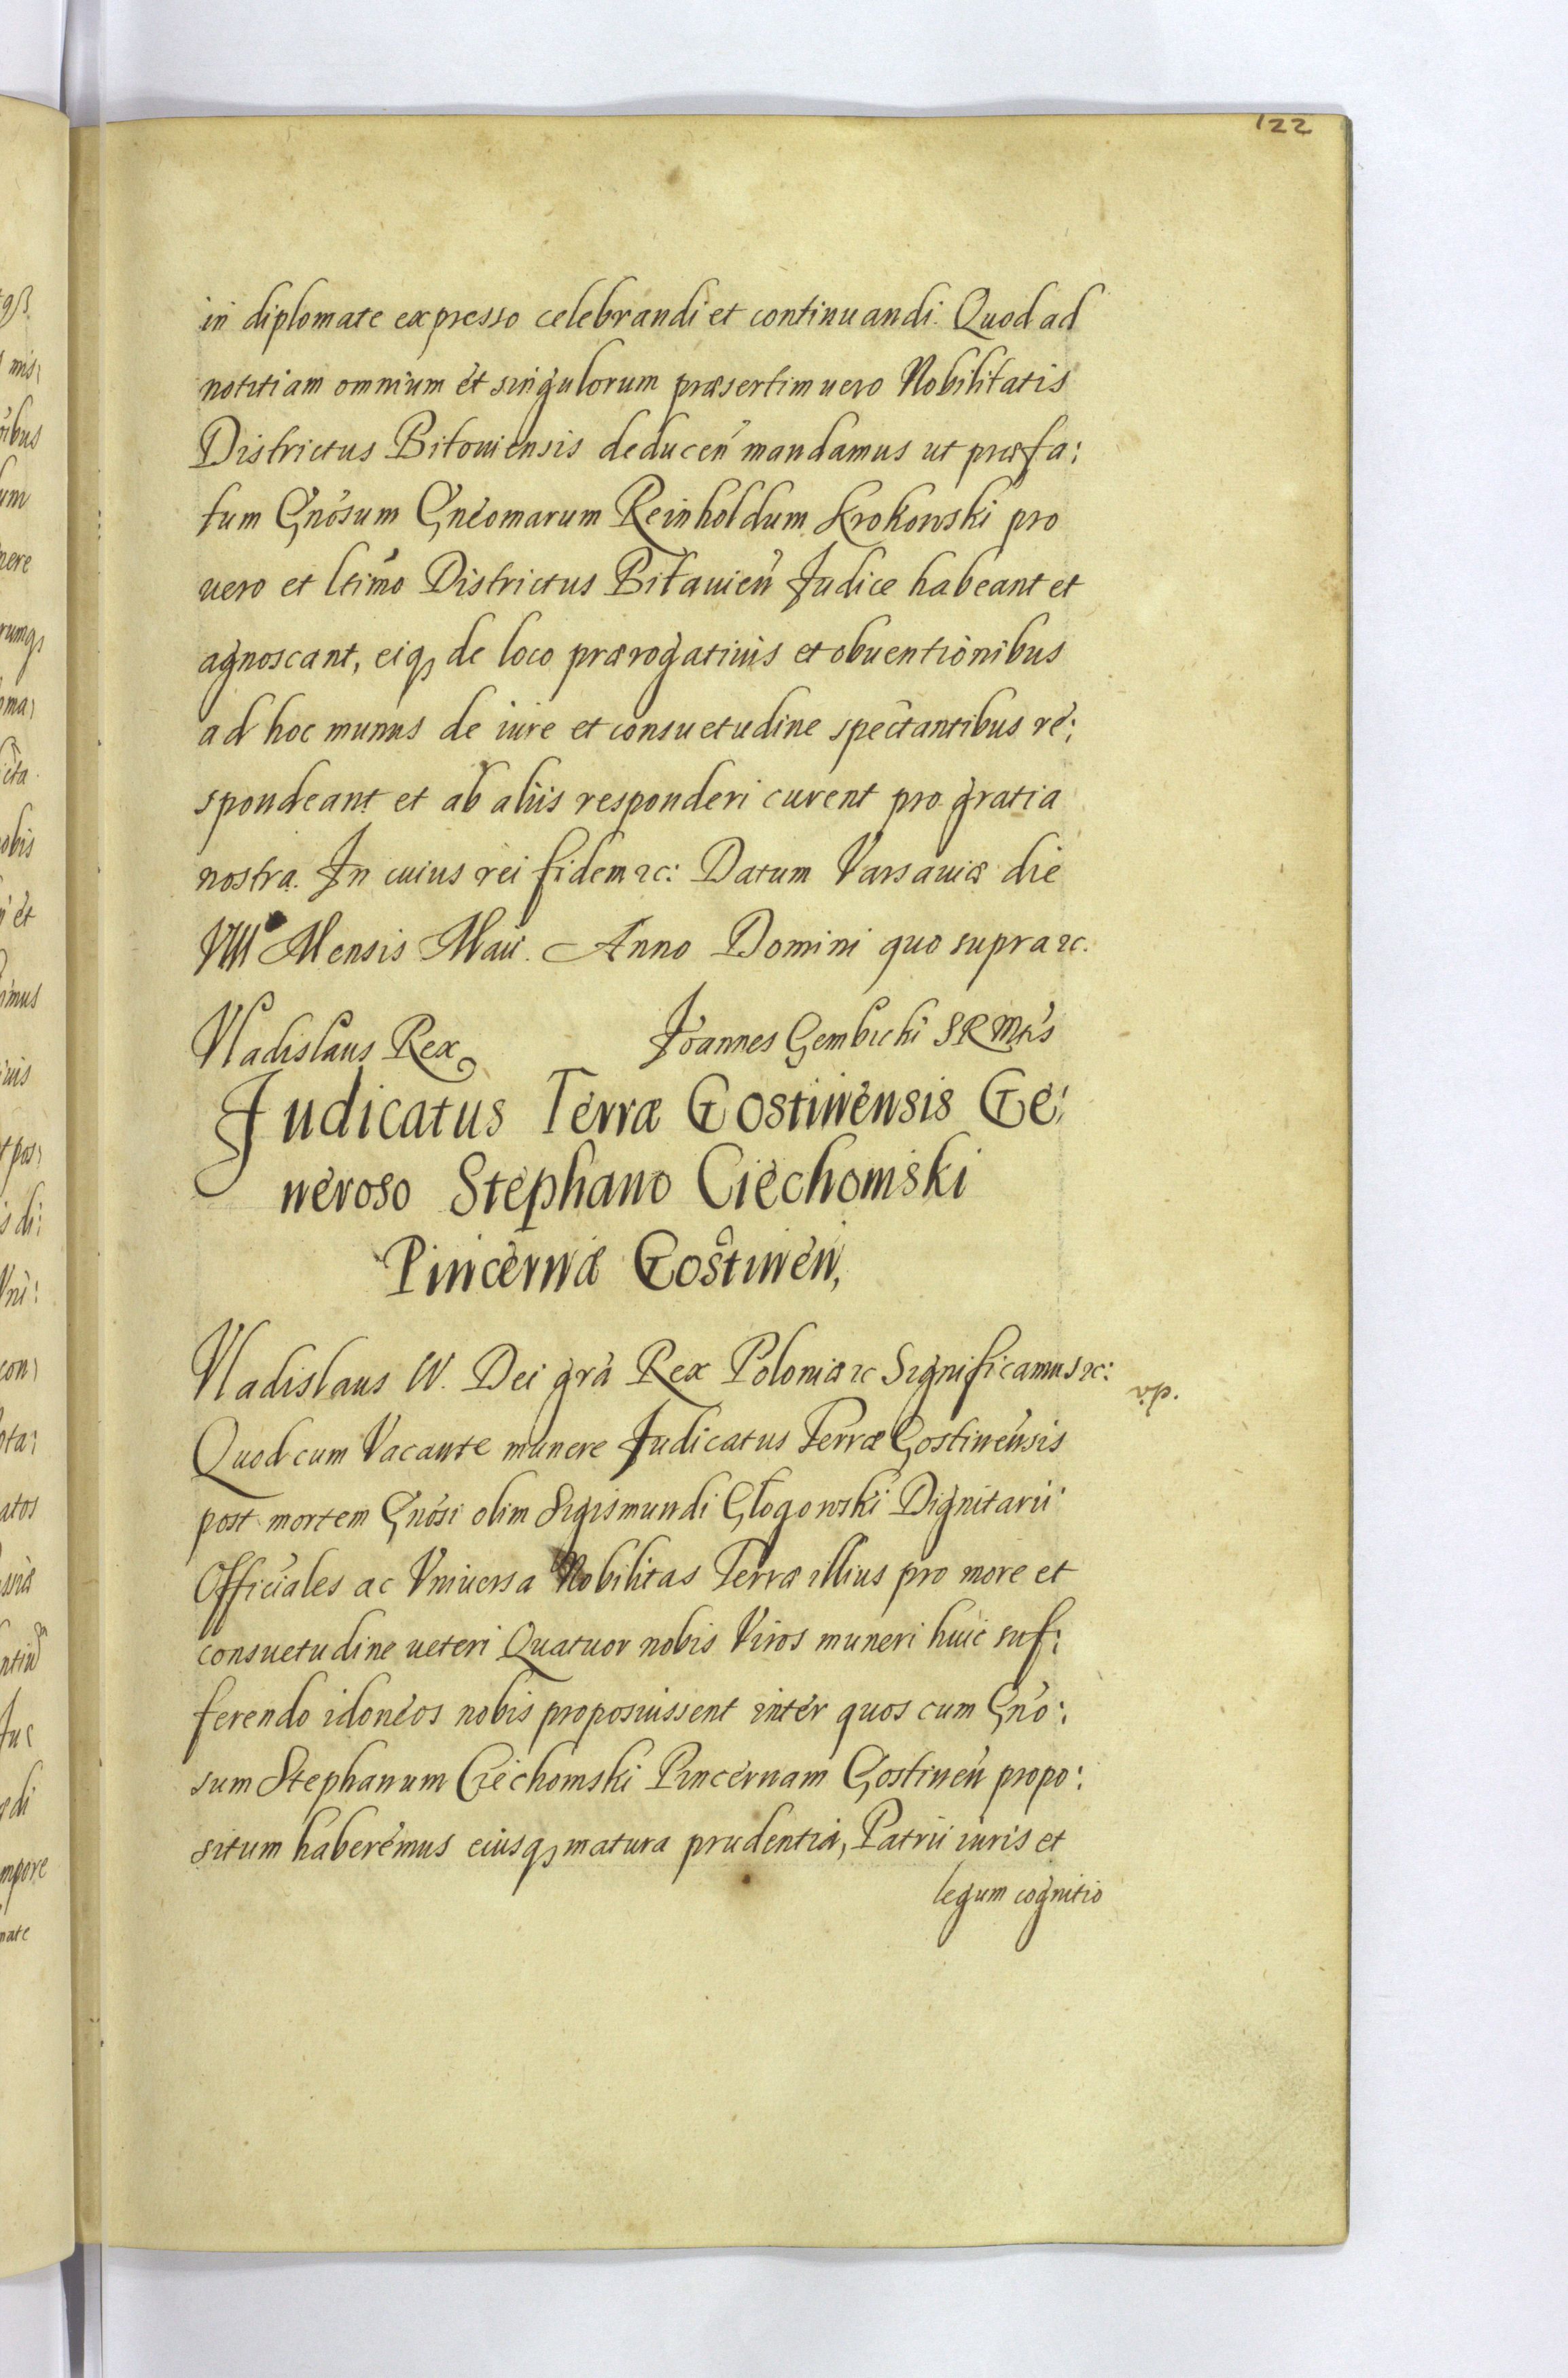 122
in diplomate expresso celebrandi et continuandi. Quod ad
notitiam omnium et singulorum præsertim uero Nobilitatis
Districtus Bitouiensis deducen̄ mandamus ut præfa:
tum Gnōsum Gneomarum Reinholdum Krokowski pro
uero et ltimo Districtus Bitauien̄ Judice habeant et
agnoscant, eiqꝫ de loco prærogatiuis et obuentionibus
ad hoc munus de iure et consuetudine spectantibus re:
spondeant et ab aliis responderi curent pro gratia
nostra. In cuius rei fidem ꝛc: Datum Varsauiæ die
VIII Mensis Maii. Anno Domini quo supra ꝛc.
Vladislaus Rex
Joannes Gembicki SRMtis
Judicatus Terræ Gostinensis Ge:
neroso Stephano Ciechomski
Pincernæ Gostinen,
Vladislaus IV. Dei grā Rex Poloniæ ꝛc Significamus ꝛc:
Quod cum Vacante munere Judicatus Terræ Gostinensis
post mortem Gnōsi olim Sigismundi Glogowski Dignitarii
Officiales ac Vniuersa Nobilitas Terræ illius pro more et
consuetudine ueteri Quatuor nobis Viros muneri huic suf:
ferendo idoneos nobis proposuissent inter quos cum Gnō:
sum Stephanum Ciechomski Pincernam Gostinen̄ propo:
situm haberemus eiusqꝫ matura prudentia, Patrii iuris et
legum cognitio